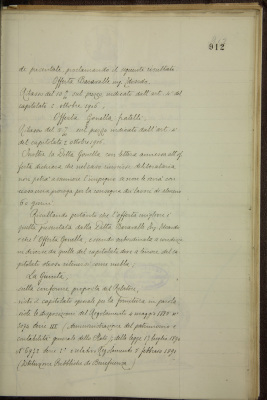 912
da presentate, proclamando il seguente risultato:
Offerta Baravalle ing. Edoardo.
Ribasso del 10 % sul prezzo indicato dall'art. 4 del
capitolato 5 ottobre 1916,
Offerta Gonella fratelli.
Ribasso del % sul prezzo indicato dall'art. 4
del capitolato 5 ottobre 1916
Inoltre la Ditta Gonella con lettera annessa all'of
ferta dichiara che nel caso
non potrà assumere l'impegno se non le verrà con
cessa una proroga per la consegna dei lavori di almeno
giorni.
Risultando pertanto che l'offerta migliore è
quella presentata dalla Ditta Baravalle Ing. Edoardo
e che l'offerta Gonella, essendo subordinata a condizio
ni diverse da quelle del capitolato deve a tenore del ca
pitolato stesso ritenersi come nulla,
La Giunta,
sulla conforme proposta del Relatore,
visto il capitolato speciale per la fornitura in parola,
viste le disposizioni del Regolamento 4 maggio 1885 n°
3074 serie III (amministrazione del patrimonio e
contabilità generale dello Stato), della legge 17 luglio 1890
N° 6972 serie e relativo Reg. 5 febbraio 1891
(Istituzioni Pubbliche di Beneficenza)